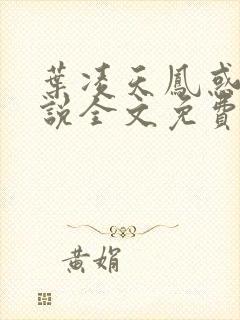 葉凌天鳳惑
說全文免費
黃娟